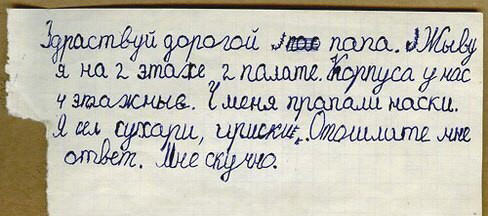 Здраствуй дорогой папа. Жыву
я на 2 этаже 2 палате. Корпуса у нас
4 этажные. У меня прапали наски.
Я сел сухари, ириски. Отошлите мне
ответ. Мне скучно.